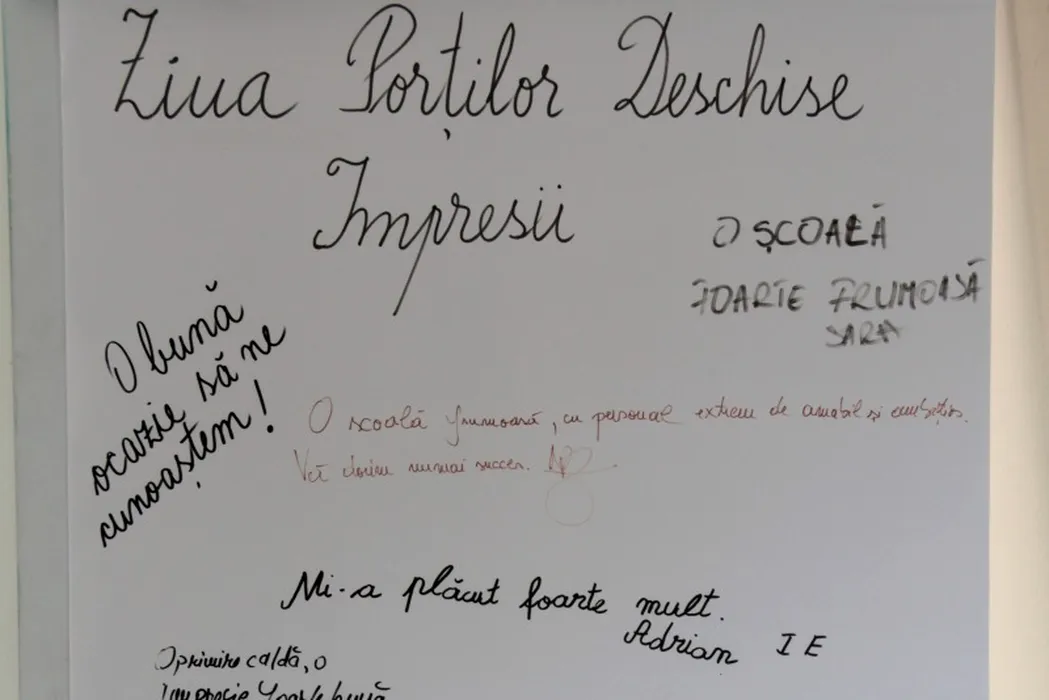 Ziua Porților Deschise
Impresii
O ȘCOALĂ
FOARTE FRUMOASĂ
SARA
O bună
ocazie să ne
cunoaștem!
O școală frumoasă, cu personal extrem de amabil și
Vă dorim numai succes.
Mi-a plăcut foarte mult.
Adrian I E
O primire caldă, o
impresie foarte bună